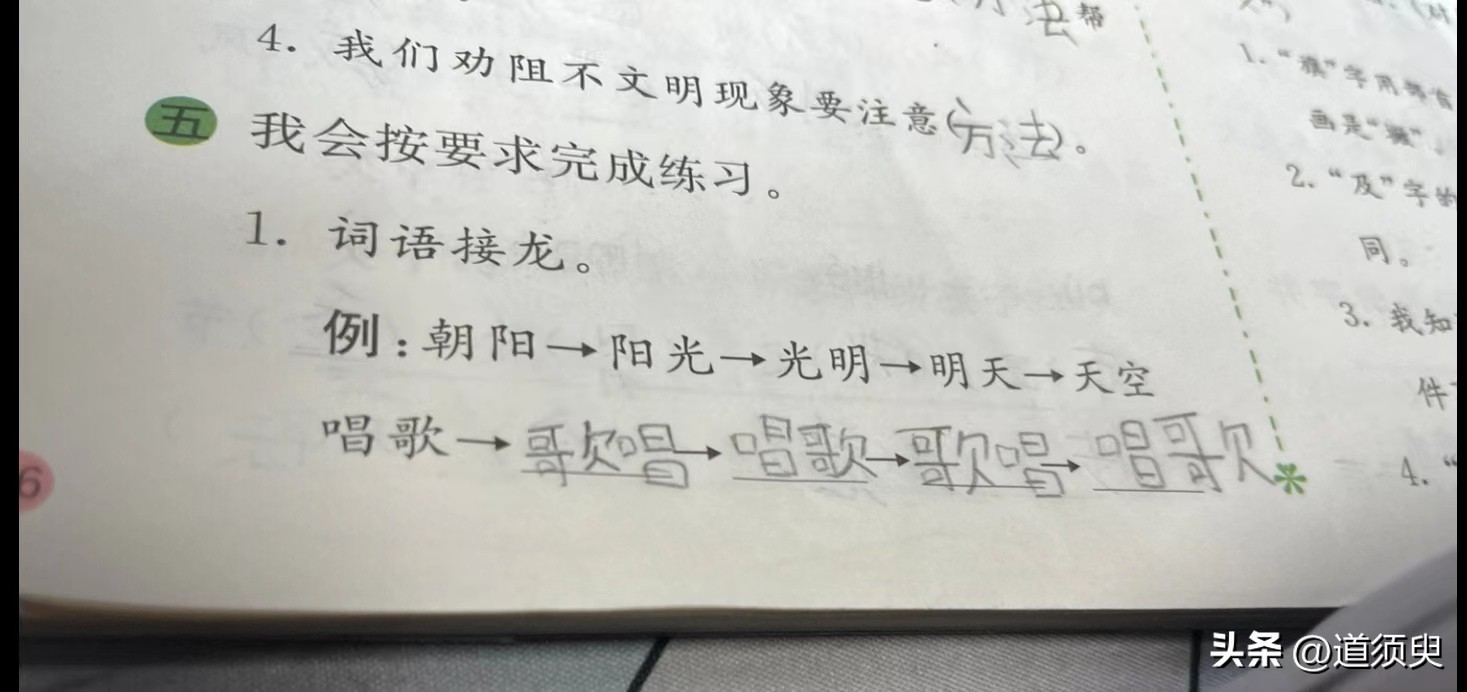 法帮
4. 我们劝阻不文明现象要注意(方法)。
五 我会按要求完成练习。
1. 词语接龙。
例:朝阳→阳光→光明→明天→天空
唱歌→歌唱→唱歌→歌唱→唱歌
6
1. “ ”字用部首
画是“ ”。
2. “及”字的
同。
3. 我知
件
4. “
头条 @道须臾